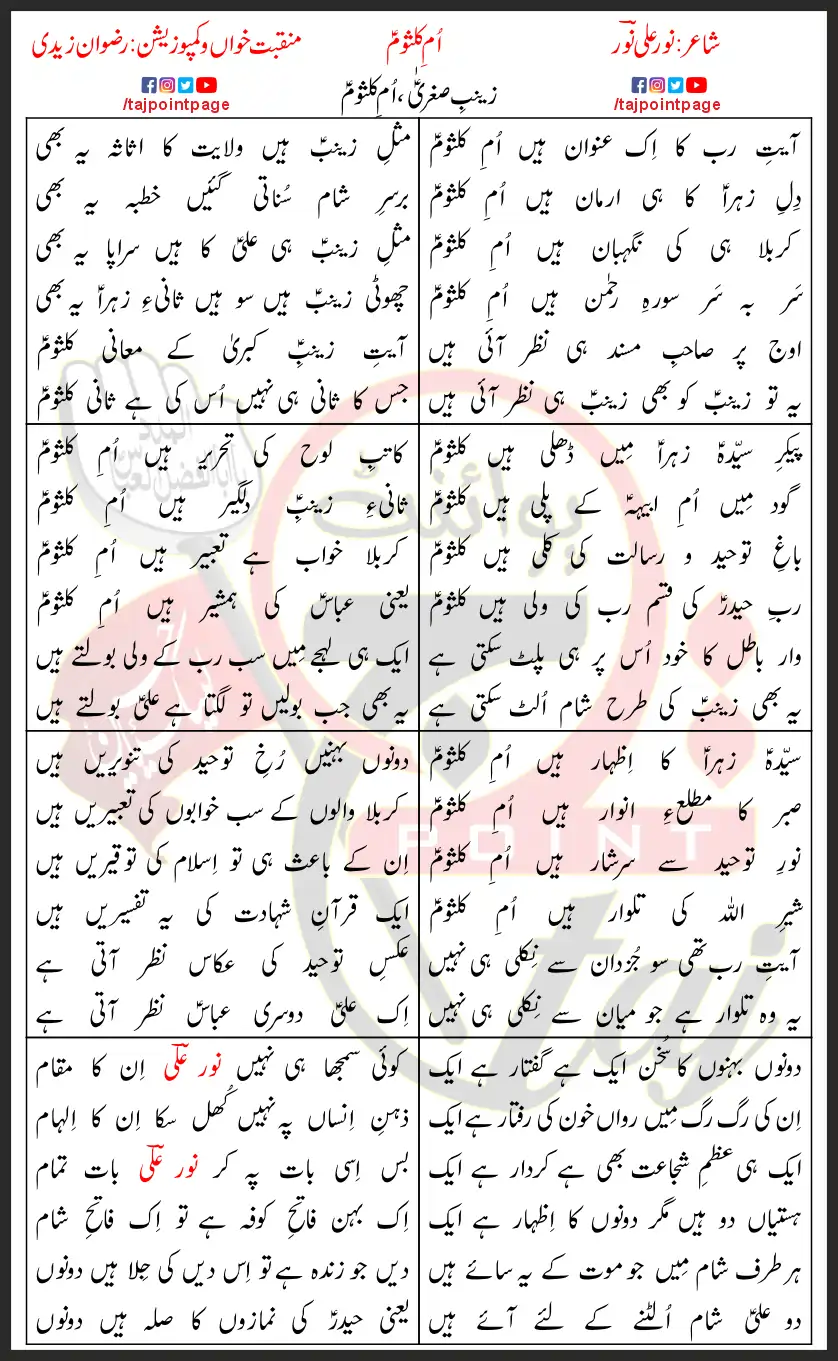 شاعر: نور علی نور
اُمِ کلثومؑ
منقبت خواں و کمپوزیشن: رضوان زیدی
/tajpointpage
زینبِ صغریٰؑ، اُمِ کلثومؑ
/tajpointpage
آیتِ رب کا اِک عنوان ہیں اُمِ کلثومؑ
دِلِ زہراؑ کا ہی ارمان ہیں اُمِ کلثومؑ
کربلا ہی کی نگہبان ہیں اُمِ کلثومؑ
سَر بہ سَر سورہِ رحمٰن ہیں اُمِ کلثومؑ
اوج پر صاحبِ مسند ہی نظر آئی ہیں
یہ تو زینبؑ کو بھی زینبؑ ہی نظر آئی ہیں
مثلِ زینبؑ ہیں ولایت کا اثاثہ یہ بھی
برسرِ شام سُناتی گئیں خطبہ یہ بھی
مثلِ زینبؑ ہی علیؑ کا ہیں سراپا یہ بھی
چھوٹی زینبؑ ہیں سو ہیں ثانیءِ زہراؑ یہ بھی
آیتِ زینبِؑ کبریٰ کے معانی کلثومؑ
جس کا ثانی ہی نہیں اُس کی ہے ثانی کلثومؑ
پیکرِ سیّدہؑ زہراؑ مِیں ڈھلی ہیں کلثومؑ
گود مِیں اُمِ ابیہہؑ کے پلی ہیں کلثومؑ
باغِ توحید و رسالت کی کلی ہیں کلثومؑ
ربِ حیدرؑ کی قسم رب کی ولی ہیں کلثومؑ
وار باطل کا خود اُس پر ہی پلٹ سکتی ہے
یہ بھی زینبؑ کی طرح شام اُلٹ سکتی ہے
کاتبِ لوح کی تحریر ہیں اُمِ کلثومؑ
ثانیءِ زینبِؑ دلگیر ہیں اُمِ کلثومؑ
کربلا خواب ہے تعبیر ہیں اُمِ کلثومؑ
یعنی عباسؑ کی ہمشیر ہیں اُمِ کلثومؑ
ایک ہی لہجے مِیں سب رب کے ولی بولتے ہیں
یہ بھی جب بولیں تو لگتا ہے علیؑ بولتے ہیں
سیّدہؑ زہراؑ کا اِظہار ہیں اُمِ کلثومؑ
صبر کا مطلعءِ انوار ہیں اُمِ کلثومؑ
نورِ توحید سے سرشار ہیں اُمِ کلثومؑ
شیرِ اللہ کی تلوار ہیں اُمِ کلثومؑ
آیتِ رب تھی سو جُزدان سے نِکلی ہی نہیں
یہ وہ تلوار ہے جو میان سے نِکلی ہی نہیں
دونوں بہنیں رُخِ توحید کی تنویریں ہیں
کربلا والوں کے سب خوابوں کی تعبیریں ہیں
اِن کے باعث ہی تو اِسلام کی توقیریں ہیں
ایک قرآنِ شہادت کی یہ تفسیریں ہیں
عکسِ توحید کی عکاس نظر آتی ہے
اِک علیؑ دوسری عباسؑ نظر آتی ہے
دونوں بہنوں کا سُخن ایک ہے گفتار ہے ایک
اِن کی رگ رگ مِیں رواں خون کی رفتار ہے ایک
ایک ہی عظمِ شجاعت بھی ہے کردار ہے ایک
ہستیاں دو ہیں مگر دونوں کا اِظہار ہے ایک
ہر طرف شام مِیں جو موت کے یہ سائے ہیں
دو علیؑ شام اُلٹنے کے لئے آئے ہیں
کوئی سمجھا ہی نہیں نور علی اِن کا مقام
ذہنِ اِنساں پہ نہیں کُھل سکا اِن کا اِلہام
بس اِسی بات پہ کر نور علی بات تمام
اِک بہن فاتحِ کوفہ ہے تو اِک فاتحِ شام
دیں جو زندہ ہے تو اِس دیں کی جِلا ہیں دونوں
یعنی حیدرؑ کی نمازوں کا صلہ ہیں دونوں
پوائنٹ
POINT
taj